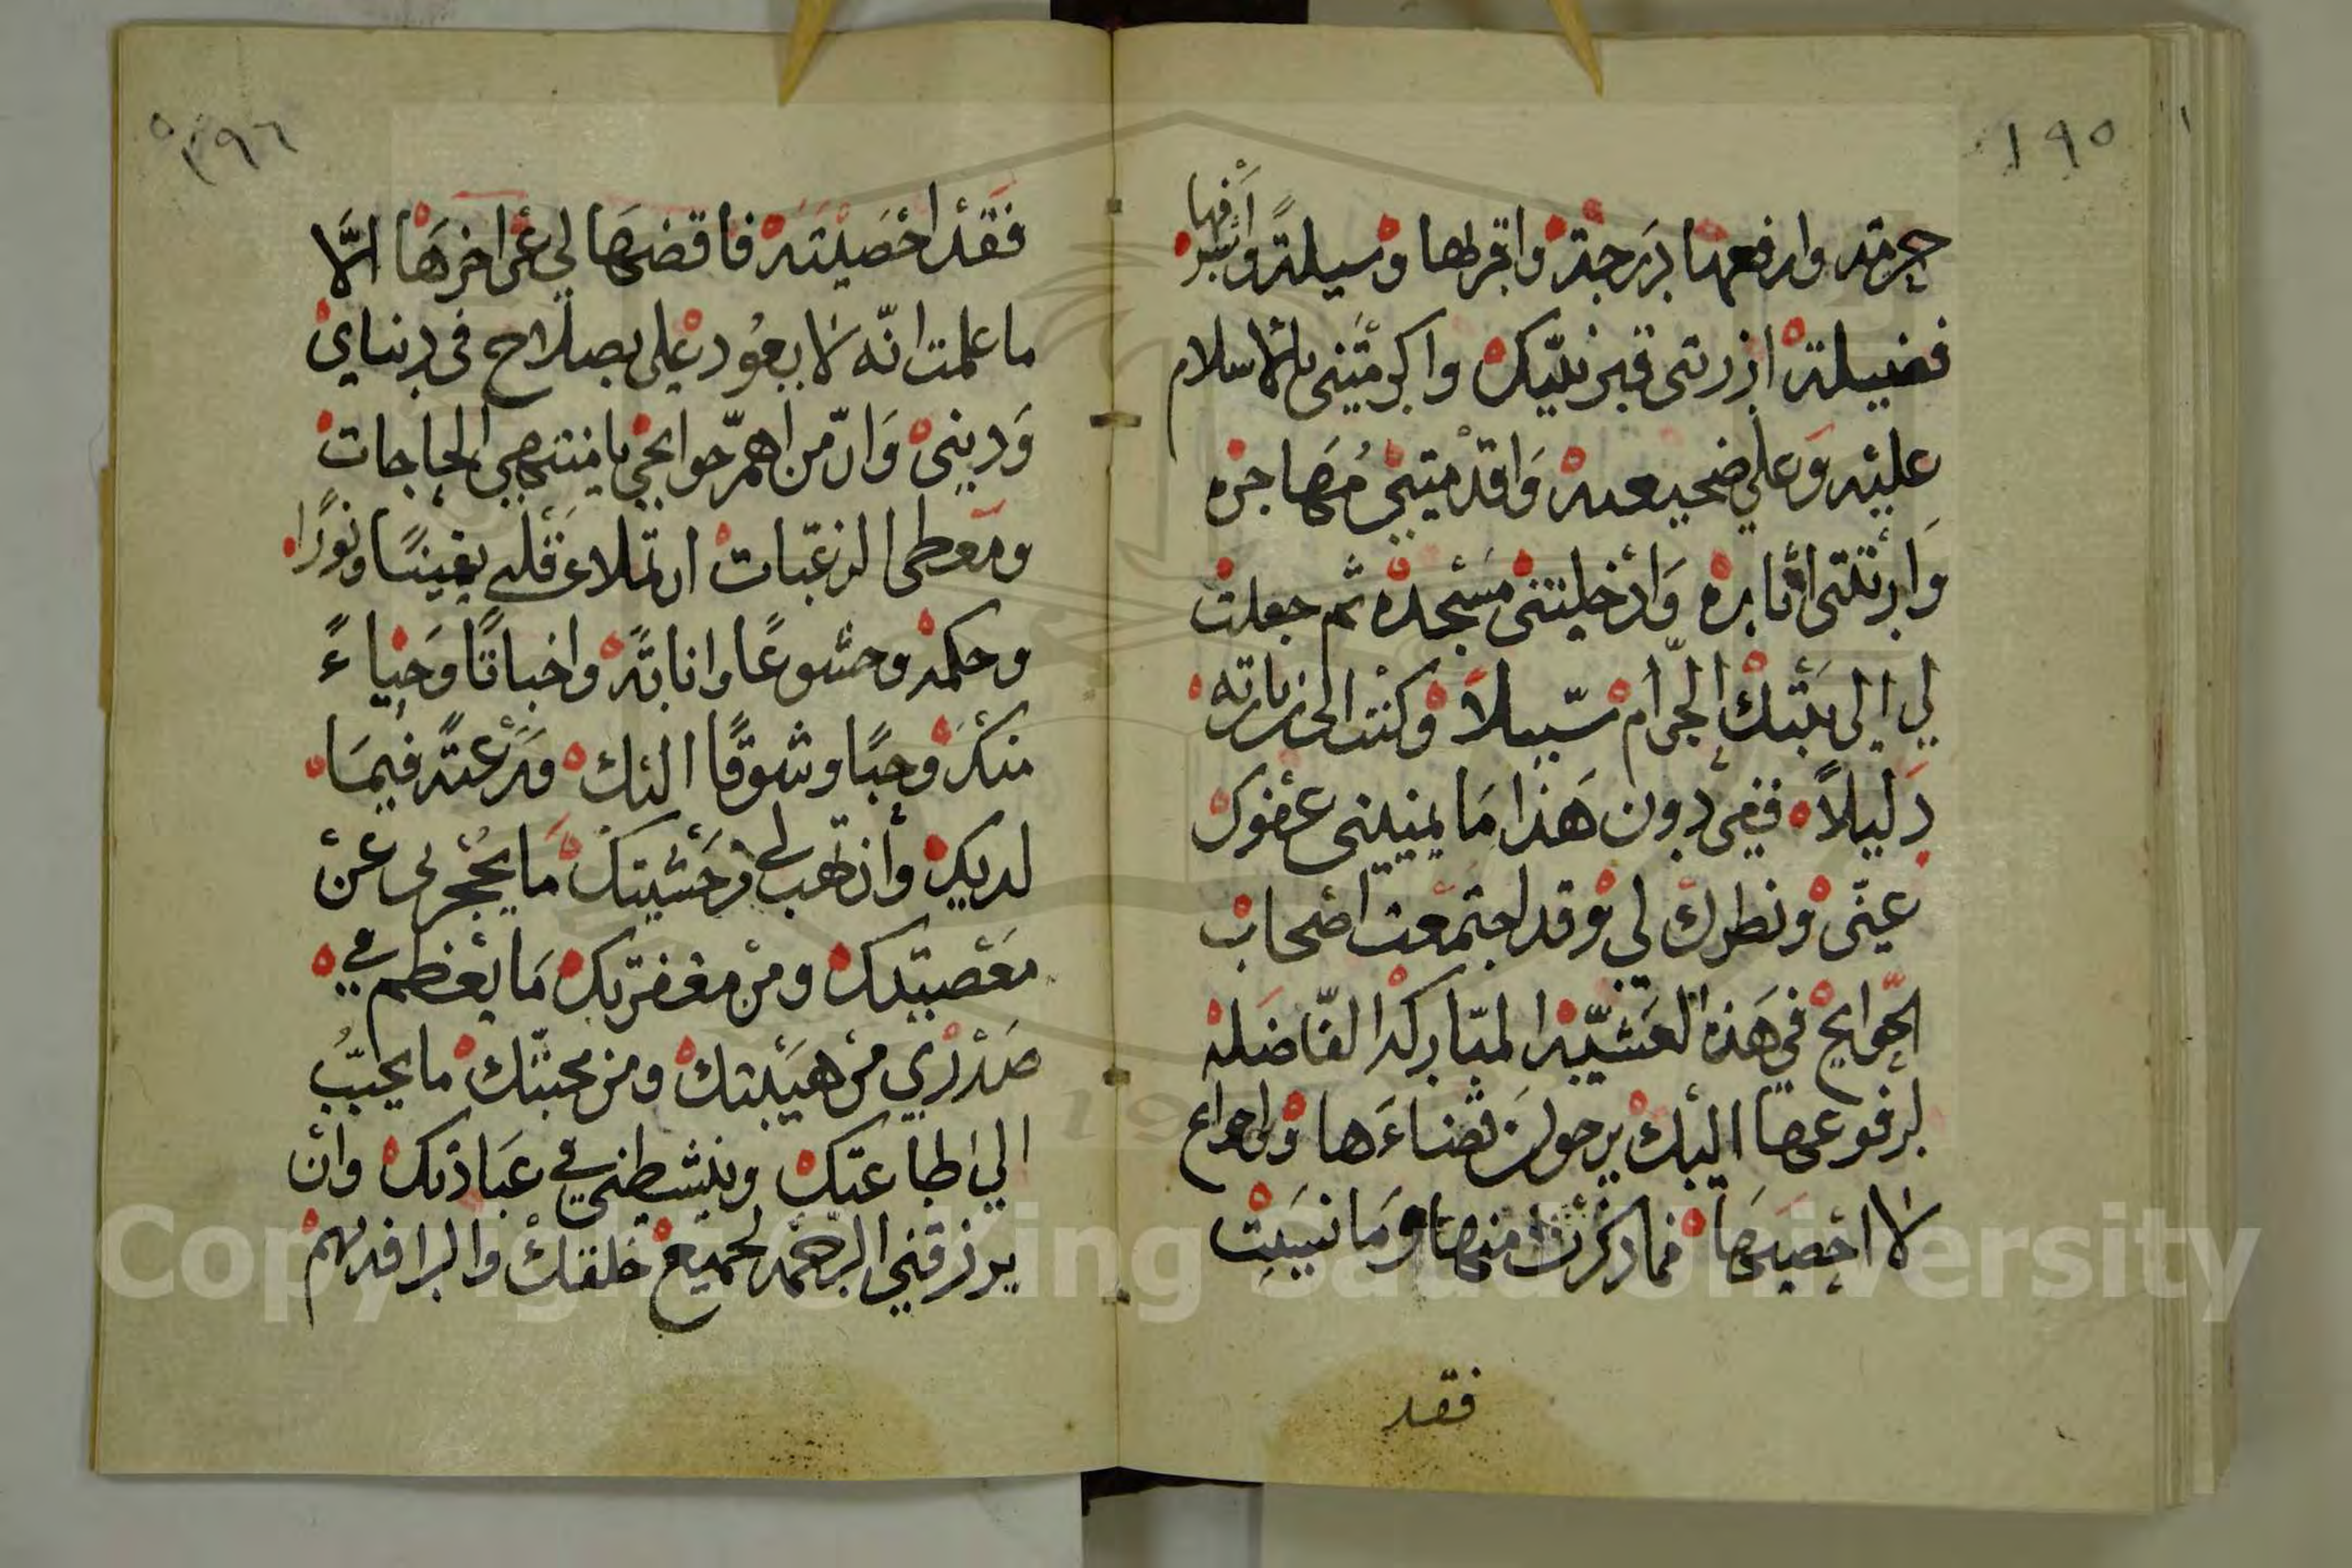 ١٩٥
حرمة وارفعها درجة واقربها وسيلة
فضيلة اذ زرتنى قبر نبيّك واكرمتنى بالاسلام
عليه وعلي ضجيعه وَاقدمتنى مُهَاجره
وَارتني اثاره وَادخلتنى مسْجده ثم جعلت
لي الى بيتك الحرام سّبيلاً وكنت الى زيارته
دَليلاً ففي دون هَذا مَا يمنيني عفوك
عنّى ونظرك لي وقد اجتمعت اصْحاب
الحّوايج في هَذه العَشيّه المبَاركه الفَاضله
لرفوعها اليك يرجون قضاءَها
لا احصيهَا فما ذكرْت منها وَما نسيَت
فقد
١٩٦
فقَدْ احْصَيْته فاقضهَا لي عن اخرهَا الاّ
ما علمت انّه لا يعُود علي بصلاح في دنياي
وَديني وَانّ من اهمّ حوايجي يا منتهي الحاجات
ومَعطي الرغبّات ان تملاء قَلبي يقينًا ونورًا
وحكمه وخشوعًا وانابةً واخباتًا وَحياءً
منكَ وحبًا وشوقًا اليك وَرَغبةً فيمَا
لديك وأن تهب لي من خَشْيتك مَا يحْجزنى عَنْ
معَصيتك ومنْ مغفرتك مَا يعْظم في
صَدْري منْ هيَبتك ومن محبتّك ما يحببّ
الي طاعتك وينشطني في عبَادتك وانْ
يرزقني الرحْمه لجميع خلقك والرافه بهم